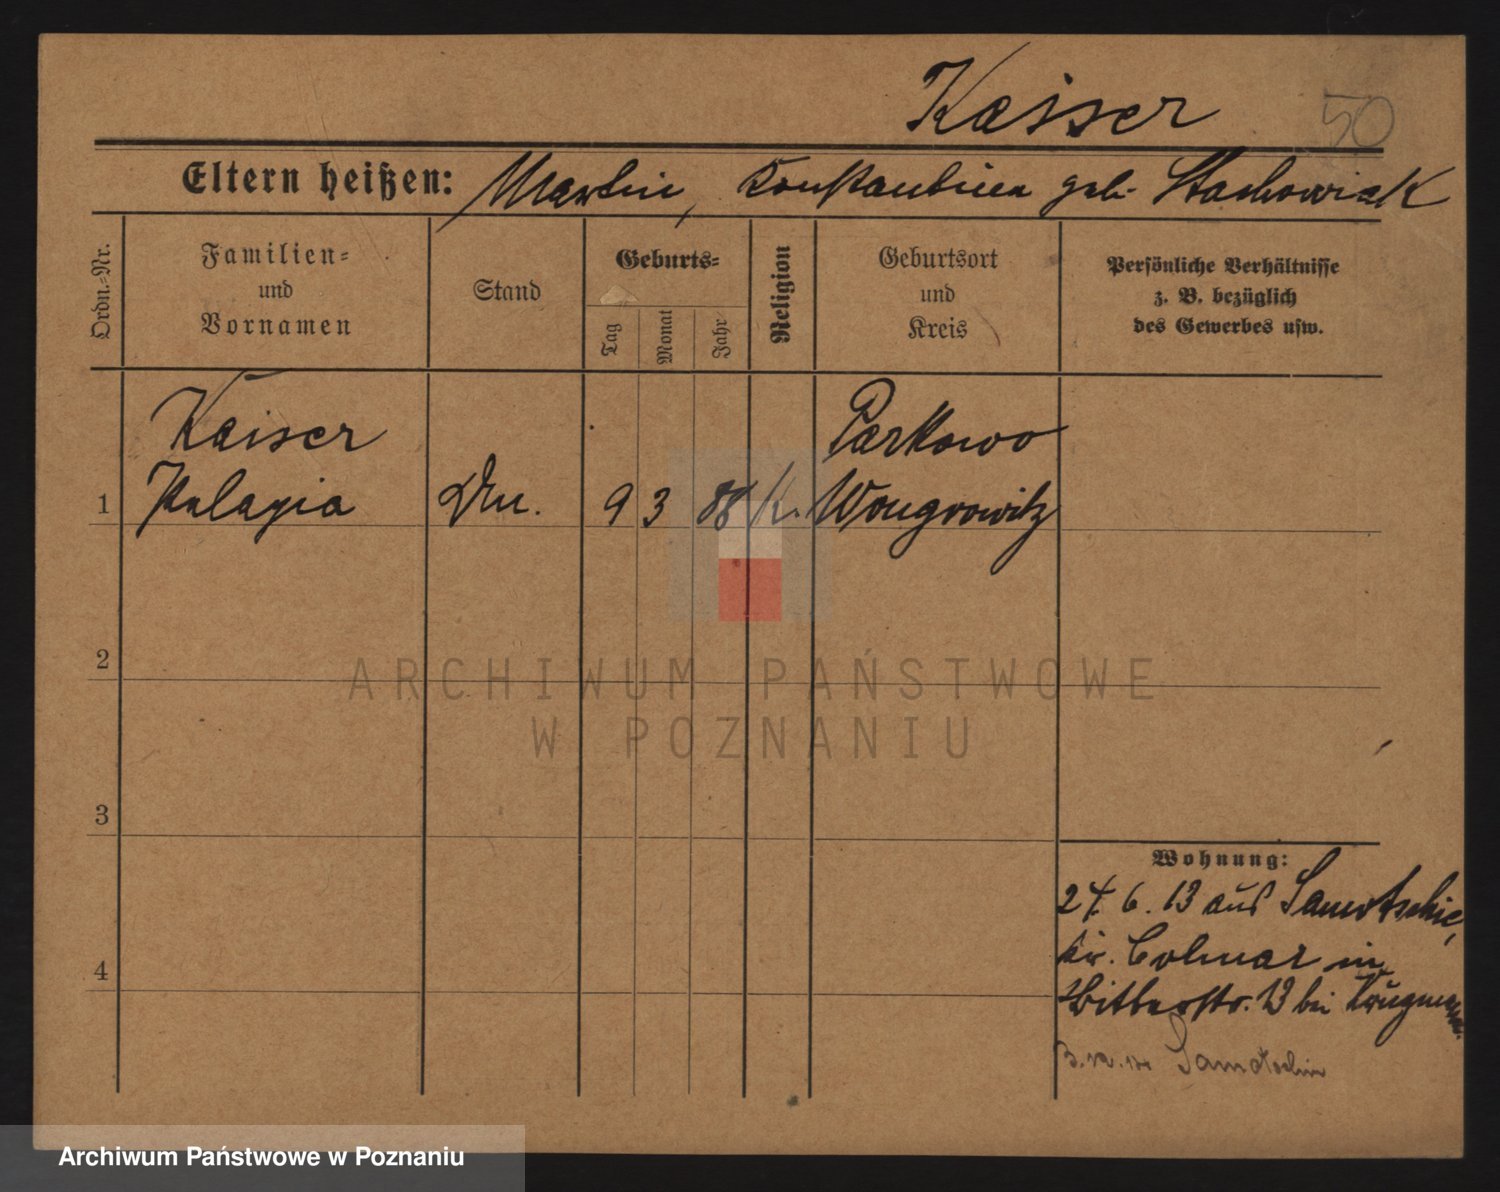 Kaiser
50
Eltern heißen: Martin, Konstantina geb. Stachowiak
Ordn.-Nr.
Familien-
und
Vornamen
Stand
Geburts-
Tag
Monat
Jahr
Religion
Geburtsort
und
Kreis
Persönliche Verhältnisse
z. B. bezüglich
des Gewerbes usw.
Kaiser Parkowo
1 Pelagia 9 3 88 K. Wongrowitz
2
3
4
Wohnung:
24. 6. 13 aus Samotschin,
Kr. Colmar in
Bitterstr. 13 bei
Samotschin
ARCHIWUM PAŃSTWOWE
W POZNANIU
Archiwum Państwowe w Poznaniu